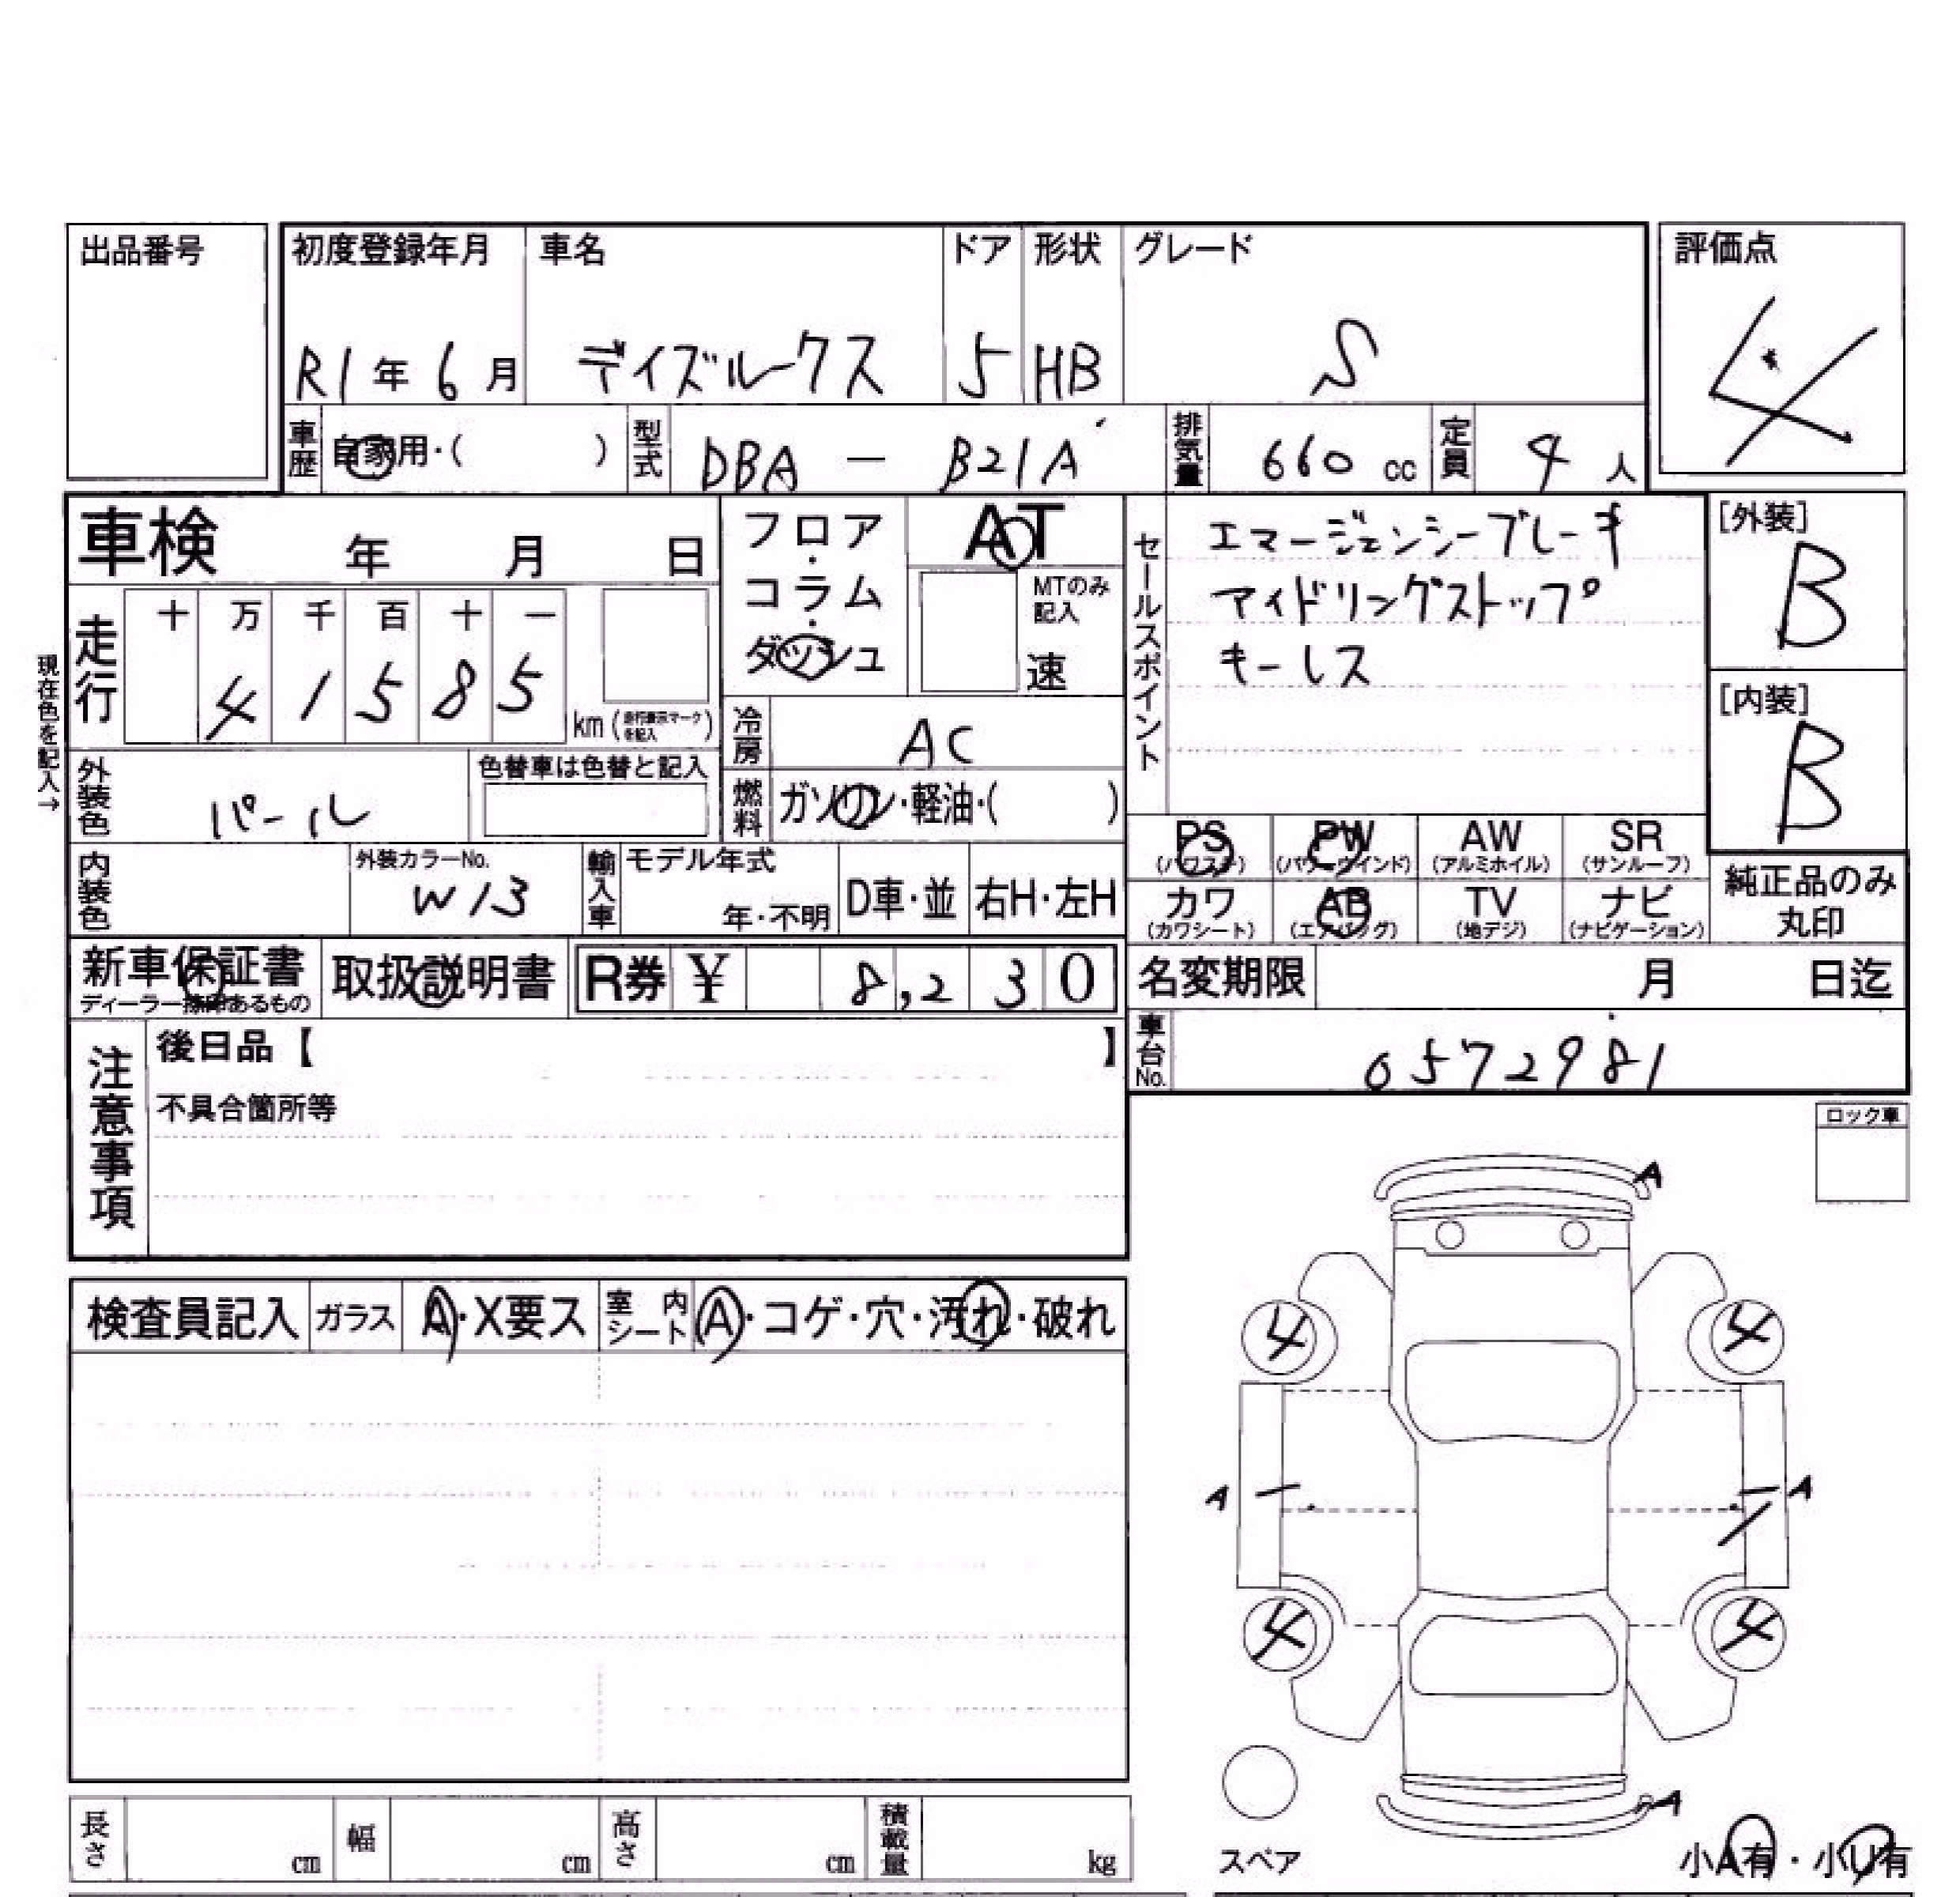 出品番号
初度登録年月 車名 ドア 形状 グレード
評価点
R1年6月 デイズルークス 5 HB S
4
車歴 自家用・( ) 型式 DBA － B21A 排気量 660 cc 定員 4 人
車検 年 月 日
フロア・コラム・ダッシュ
AT
MTのみ記入
速
セールスポイント
エマージェンシーブレーキ
アイドリングストップ
キーレス
[外装]
B
[内装]
B
現在色を記入→
走行 十 万 千 百 十 一
4 1 5 8 5
km (走行表示マークを記入)
冷房 AC
外装色 パール
色替車は色替と記入
燃料 ガソリン・軽油・( )
内装色
外装カラーNo.
W13
輸入車 モデル年式
年・不明
D車・並 右H・左H
PS (パワステ) PW (パワーウインド) AW (アルミホイル) SR (サンルーフ)
カワ (カワシート) AB (エアバッグ) TV (地デジ) ナビ (ナビゲーション)
純正品のみ
丸印
新車保証書
ディーラー捺印あるもの
取扱説明書
R券 ¥ 8,230
名変期限 月 日迄
車台No. 0572981
注意事項
後日品【 】
不具合箇所等
ロック車
A
検査員記入 ガラス A・X要ス 室内シート A・コゲ・穴・汚れ・破れ
4 4
A A
4 4
A
スペア
小A有・小U有
長さ cm 幅 cm 高さ cm 積載量 kg